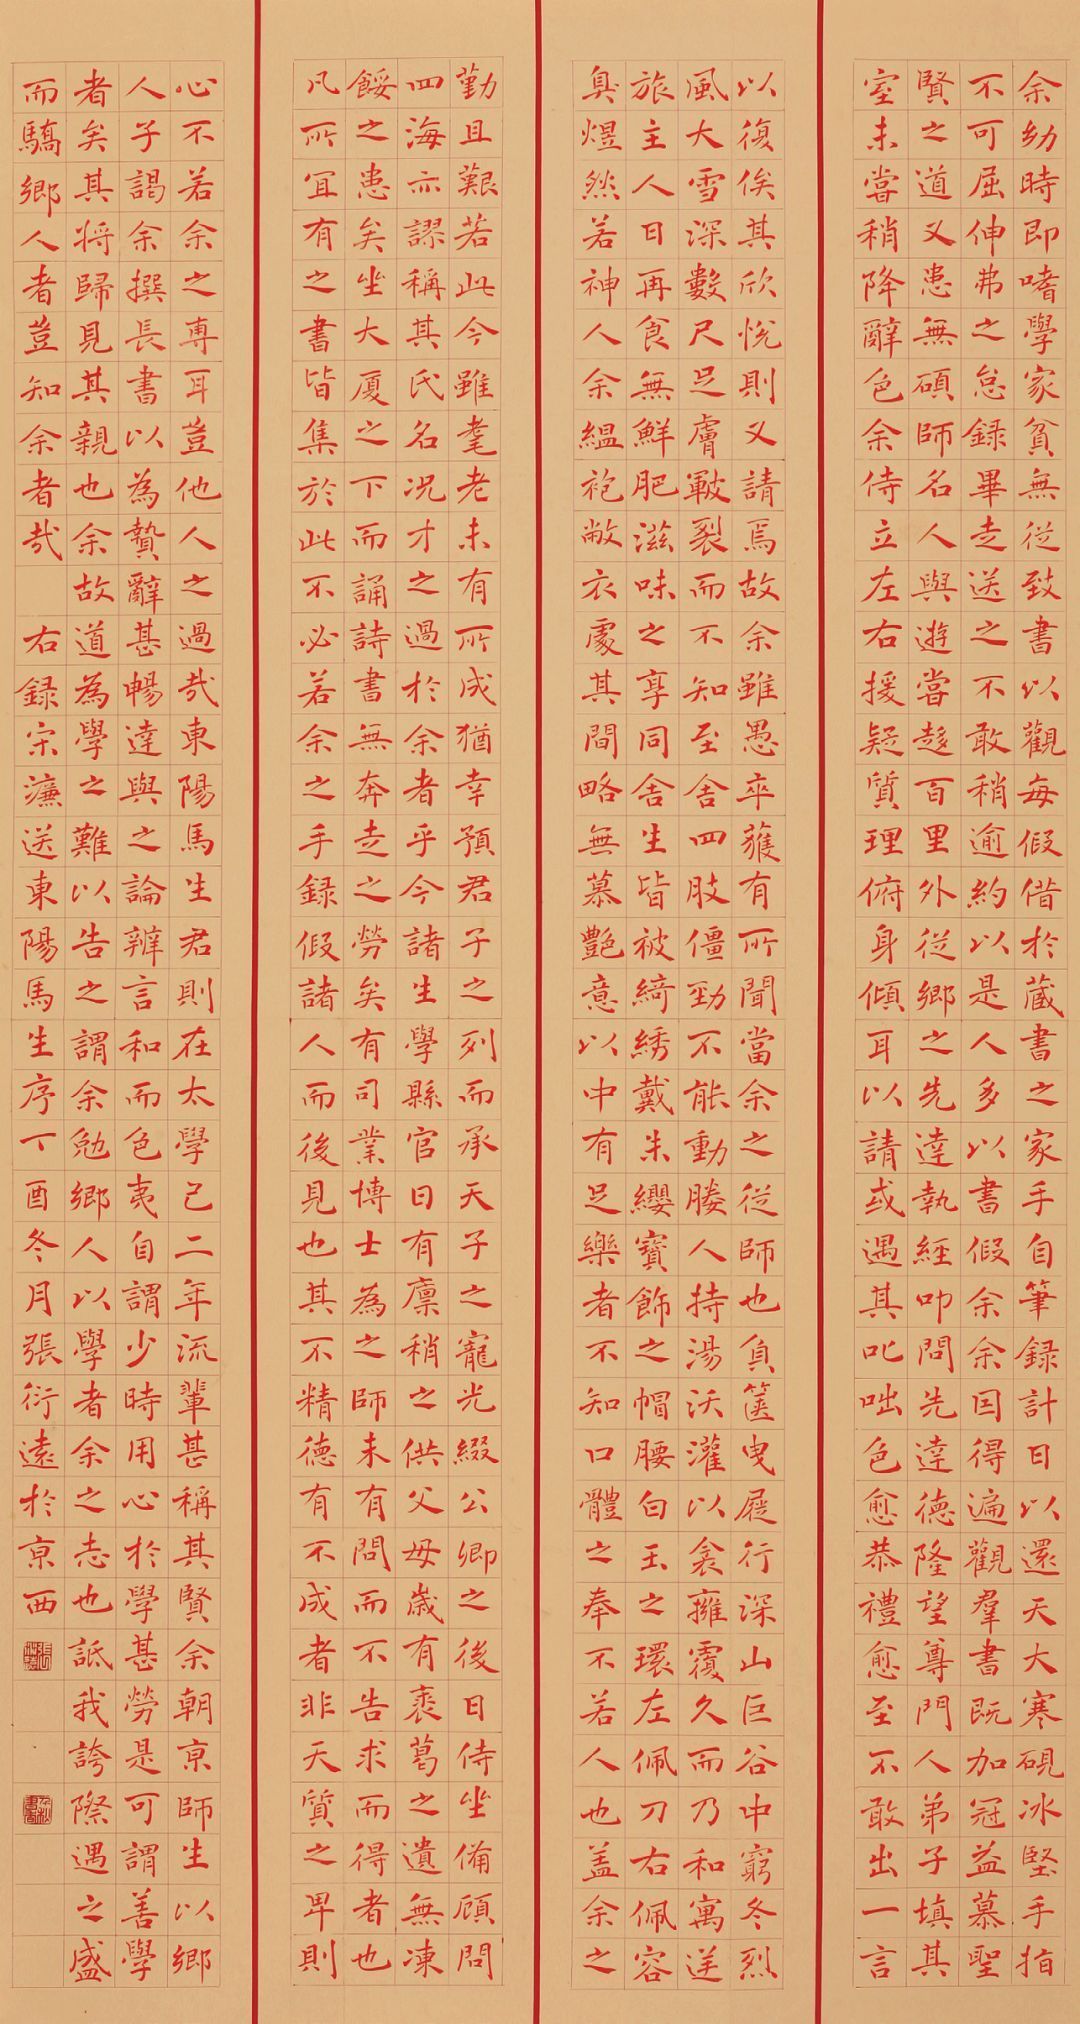 余幼時即嗜學家貧無從致書以觀每假借於藏書之家手自筆録計日以還天大寒硯冰堅手指
不可屈伸弗之怠録畢走送之不敢稍逾約以是人多以書假余余因得遍觀羣書既加冠益慕聖
賢之道又患無碩師名人與遊嘗趍百里外從鄉之先達執經叩問先達德隆望尊門人弟子填其
室未嘗稍降辭色余侍立左右援疑質理俯身傾耳以請或遇其叱咄色愈恭禮愈至不敢出一言
以復俟其欣悅則又請焉故余雖愚卒獲有所聞當余之從師也負篋曳屣行深山巨谷中窮冬烈
風大雪深數尺足膚皸裂而不知至舍四肢僵勁不能動媵人持湯沃灌以衾擁覆久而乃和寓逆
旅主人日再食無鮮肥滋味之享同舍生皆被綺綉戴朱纓寶飾之帽腰白玉之環左佩刀右佩容
臭煜然若神人余縕袍敝衣處其間略無慕艷意以中有足樂者不知口體之奉不若人也盖余之
勤且艱若此今雖耄老未有所成猶幸預君子之列而承天子之寵光綴公卿之後日侍坐備顧問
四海亦謬稱其氏名况才之過於余者乎今諸生學縣官日有廪稍之供父母歲有裘葛之遺無凍
餒之患矣坐大厦之下而誦詩書無奔走之勞矣有司業博士為之師未有問而不告求而得者也
凡所宜有之書皆集於此不必若余之手録假諸人而後見也其不精德有不成者非天質之卑則
心不若余之專耳豈他人之過哉東陽馬生君則在太學已二年流輩甚稱其賢余朝京師生以鄉
人子謁余撰長書以為贄辭甚暢達與之論辨言和而色夷自謂少時用心於學甚勞是可謂善學
者矣其將歸見其親也余故道為學之難以告之謂余勉鄉人以學者余之志也詆我誇際遇之盛
而驕鄉人者豈知余者哉 右録宋濂送東陽馬生序丁酉冬月張衍遠於京西